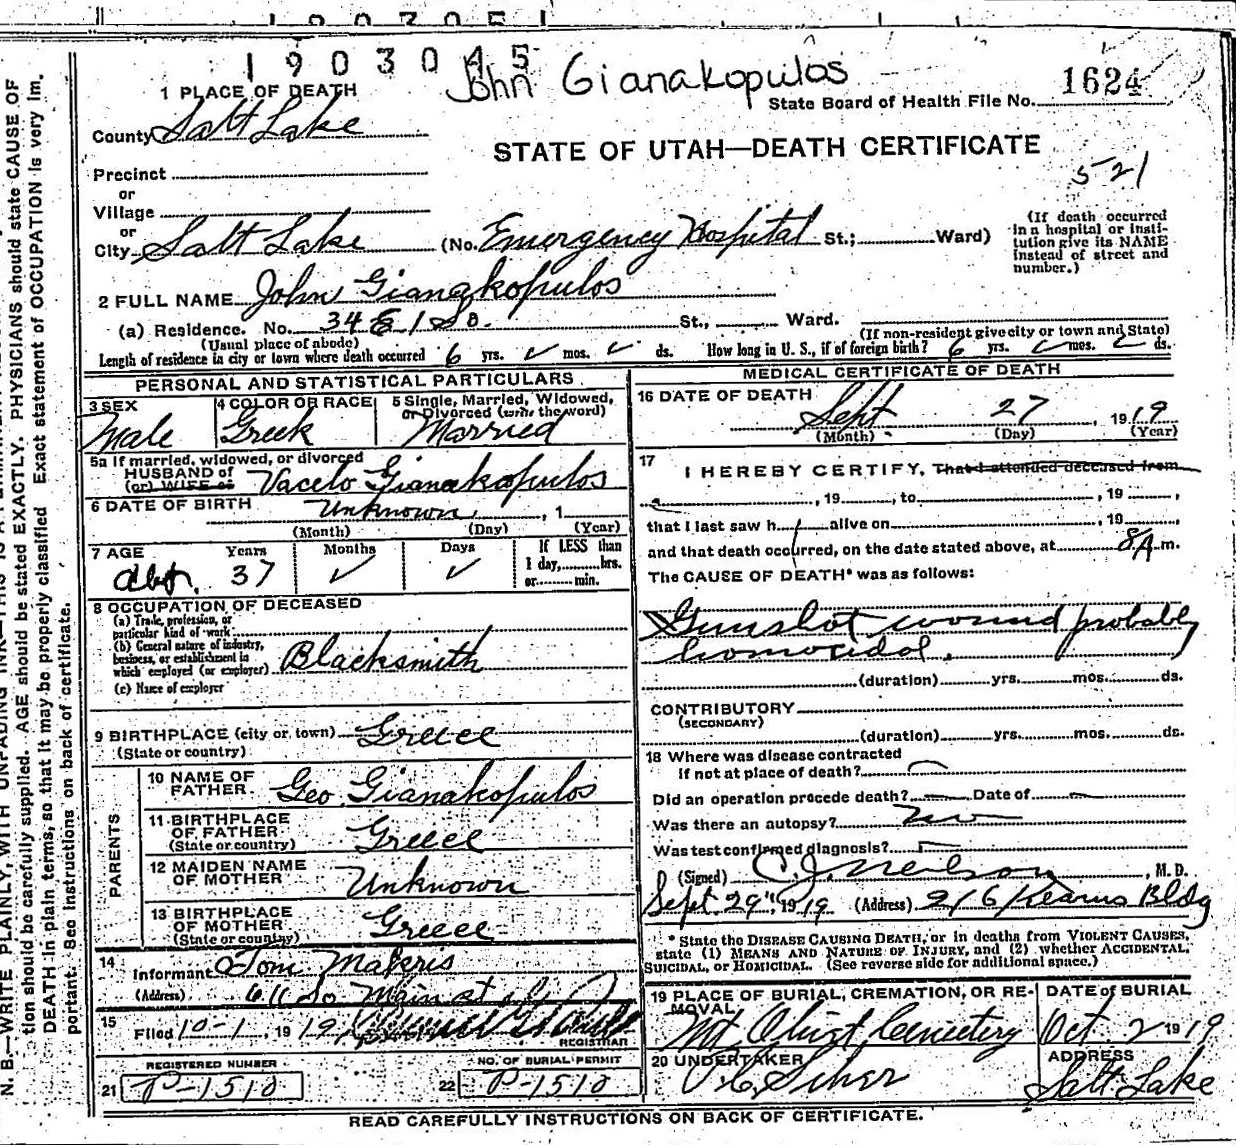 1903051
1903045
John Gianakopulos
1 PLACE OF DEATH
State Board of Health File No. 1624
County Salt Lake
STATE OF UTAH—DEATH CERTIFICATE
521
Precinct
or
Village
or
City Salt Lake (No. Emergency Hospital St.; Ward)
(If death occurred
in a hospital or insti-
tution give its NAME
instead of street and
number.)
2 FULL NAME John Gianakopulos
(a) Residence. No. 34 E 1 So. St., Ward.
(Usual place of abode) (If non-resident give city or town and State)
Length of residence in city or town where death occurred 6 yrs. mos. ds. How long in U. S., if of foreign birth? 6 yrs. mos. ds.
PERSONAL AND STATISTICAL PARTICULARS
3 SEX
Male
4 COLOR OR RACE
Greek
5 Single, Married, Widowed,
or Divorced (write the word)
Married
5a If married, widowed, or divorced
HUSBAND of
(or) WIFE of
Vacelo Gianakopulos
6 DATE OF BIRTH Unknown, 1
(Month) (Day) (Year)
7 AGE Years Months Days If LESS than
1 day, hrs.
or min.
abt. 37 ✓ ✓
8 OCCUPATION OF DECEASED
(a) Trade, profession, or
particular kind of work
(b) General nature of industry,
business, or establishment in
which employed (or employer) Blacksmith
(c) Name of employer
9 BIRTHPLACE (city or town) Greece
(State or country)
PARENTS
10 NAME OF
FATHER Geo Gianakopulos
11 BIRTHPLACE
OF FATHER
(State or country) Greece
12 MAIDEN NAME
OF MOTHER Unknown
13 BIRTHPLACE
OF MOTHER
(State or country) Greece
14
Informant Tom Makris
(Address) 611 So Main st
15
Filed 10-1, 1919
REGISTRAR
REGISTERED NUMBER
21 P-1510
NO. OF BURIAL PERMIT
22 P-1510
MEDICAL CERTIFICATE OF DEATH
16 DATE OF DEATH
Sept 27, 1919
(Month) (Day) (Year)
17
I HEREBY CERTIFY, That I attended deceased from
, 19 , to , 19 ,
that I last saw h alive on , 19
and that death occurred, on the date stated above, at 8 A m.
The CAUSE OF DEATH* was as follows:
Gunshot wound probably
homocidal.
(duration) yrs. mos. ds.
CONTRIBUTORY
(SECONDARY)
(duration) yrs. mos. ds.
18 Where was disease contracted
if not at place of death?
Did an operation precede death? Date of
Was there an autopsy? no
Was test confirmed diagnosis?
(Signed) C. J. Neilson, M. D.
Sept. 29th, 1919 (Address) 216 Kearns Bldg
* State the DISEASE CAUSING DEATH, or in deaths from VIOLENT CAUSES,
state (1) MEANS AND NATURE OF INJURY, and (2) whether ACCIDENTAL,
SUICIDAL, or HOMICIDAL. (See reverse side for additional space.)
19 PLACE OF BURIAL, CREMATION, OR RE-
MOVAL
Mt Olivet Cemetery
DATE of BURIAL
Oct 2 1919
20 UNDERTAKER
ADDRESS
Salt Lake
READ CAREFULLY INSTRUCTIONS ON BACK OF CERTIFICATE.
N. B.—WRITE PLAINLY, WITH UNFADING INK—THIS IS A
tion should be carefully supplied. AGE should be stated EXACTLY. PHYSICIANS should state CAUSE OF
DEATH in plain terms, so that it may be properly classified. Exact statement of OCCUPATION is very im.
portant. See instructions on back of certificate.